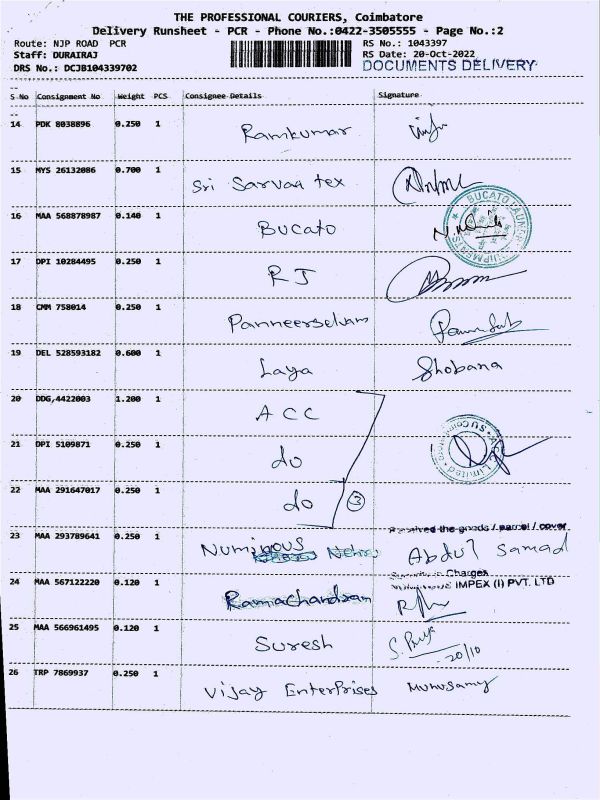 THE PROFESSIONAL COURIERS, Coimbatore
Delivery Runsheet - PCR - Phone No.:0422-3505555 - Page No.:2
Route: NJP ROAD PCR
RS No.: 1043397
Staff: DURAIRAJ
RS Date: 20-Oct-2022
DRS No.: DCJB104339702
DOCUMENTS DELIVERY
S No Consignment No Weight PCS Consignee Details Signature
14 PDK 8038896 0.250 1 Ramkumar
15 MYS 26132086 0.700 1 Sri Sarvaa tex
16 MAA 568878987 0.140 1 Bucato
BUCATO LAUN
17 DPI 10284495 0.250 1 RJ
18 CMM 758014 0.250 1 Panneerselvam
19 DEL 528593182 0.600 1 Laya Shobana
20 DDG,4422003 1.200 1 ACC
21 DPI 5109871 0.250 1 do
Limited
22 MAA 291647017 0.250 1 do 3
Received the goods / parcel / cover
23 MAA 293789641 0.250 1 Numinous Nehru Abdul Samad
Charges
24 MAA 567122220 0.120 1 Ramachandran
IMPEX (I) PVT. LTD
25 MAA 566961495 0.120 1 Suresh
20/10
26 TRP 7869937 0.250 1 Vijay Enterprises Munusamy